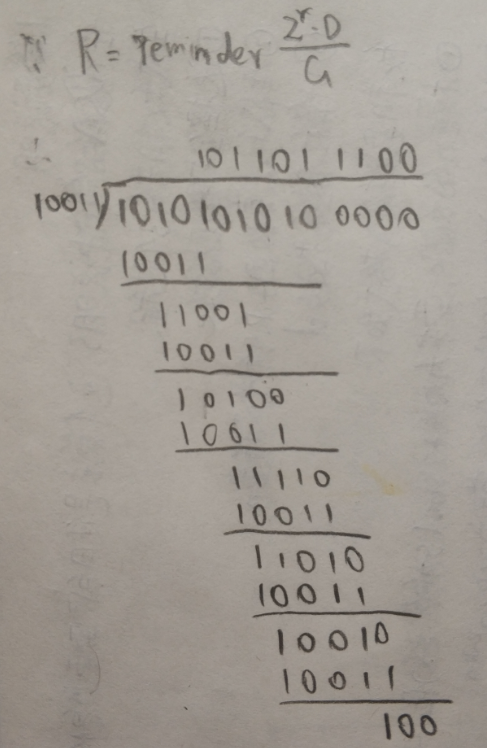 ∵ R = reminder 2^r·D / G
∴
101101 1100
10011)1010101010 0000
10011
11001
10011
10100
10011
11110
10011
11010
10011
10010
10011
100